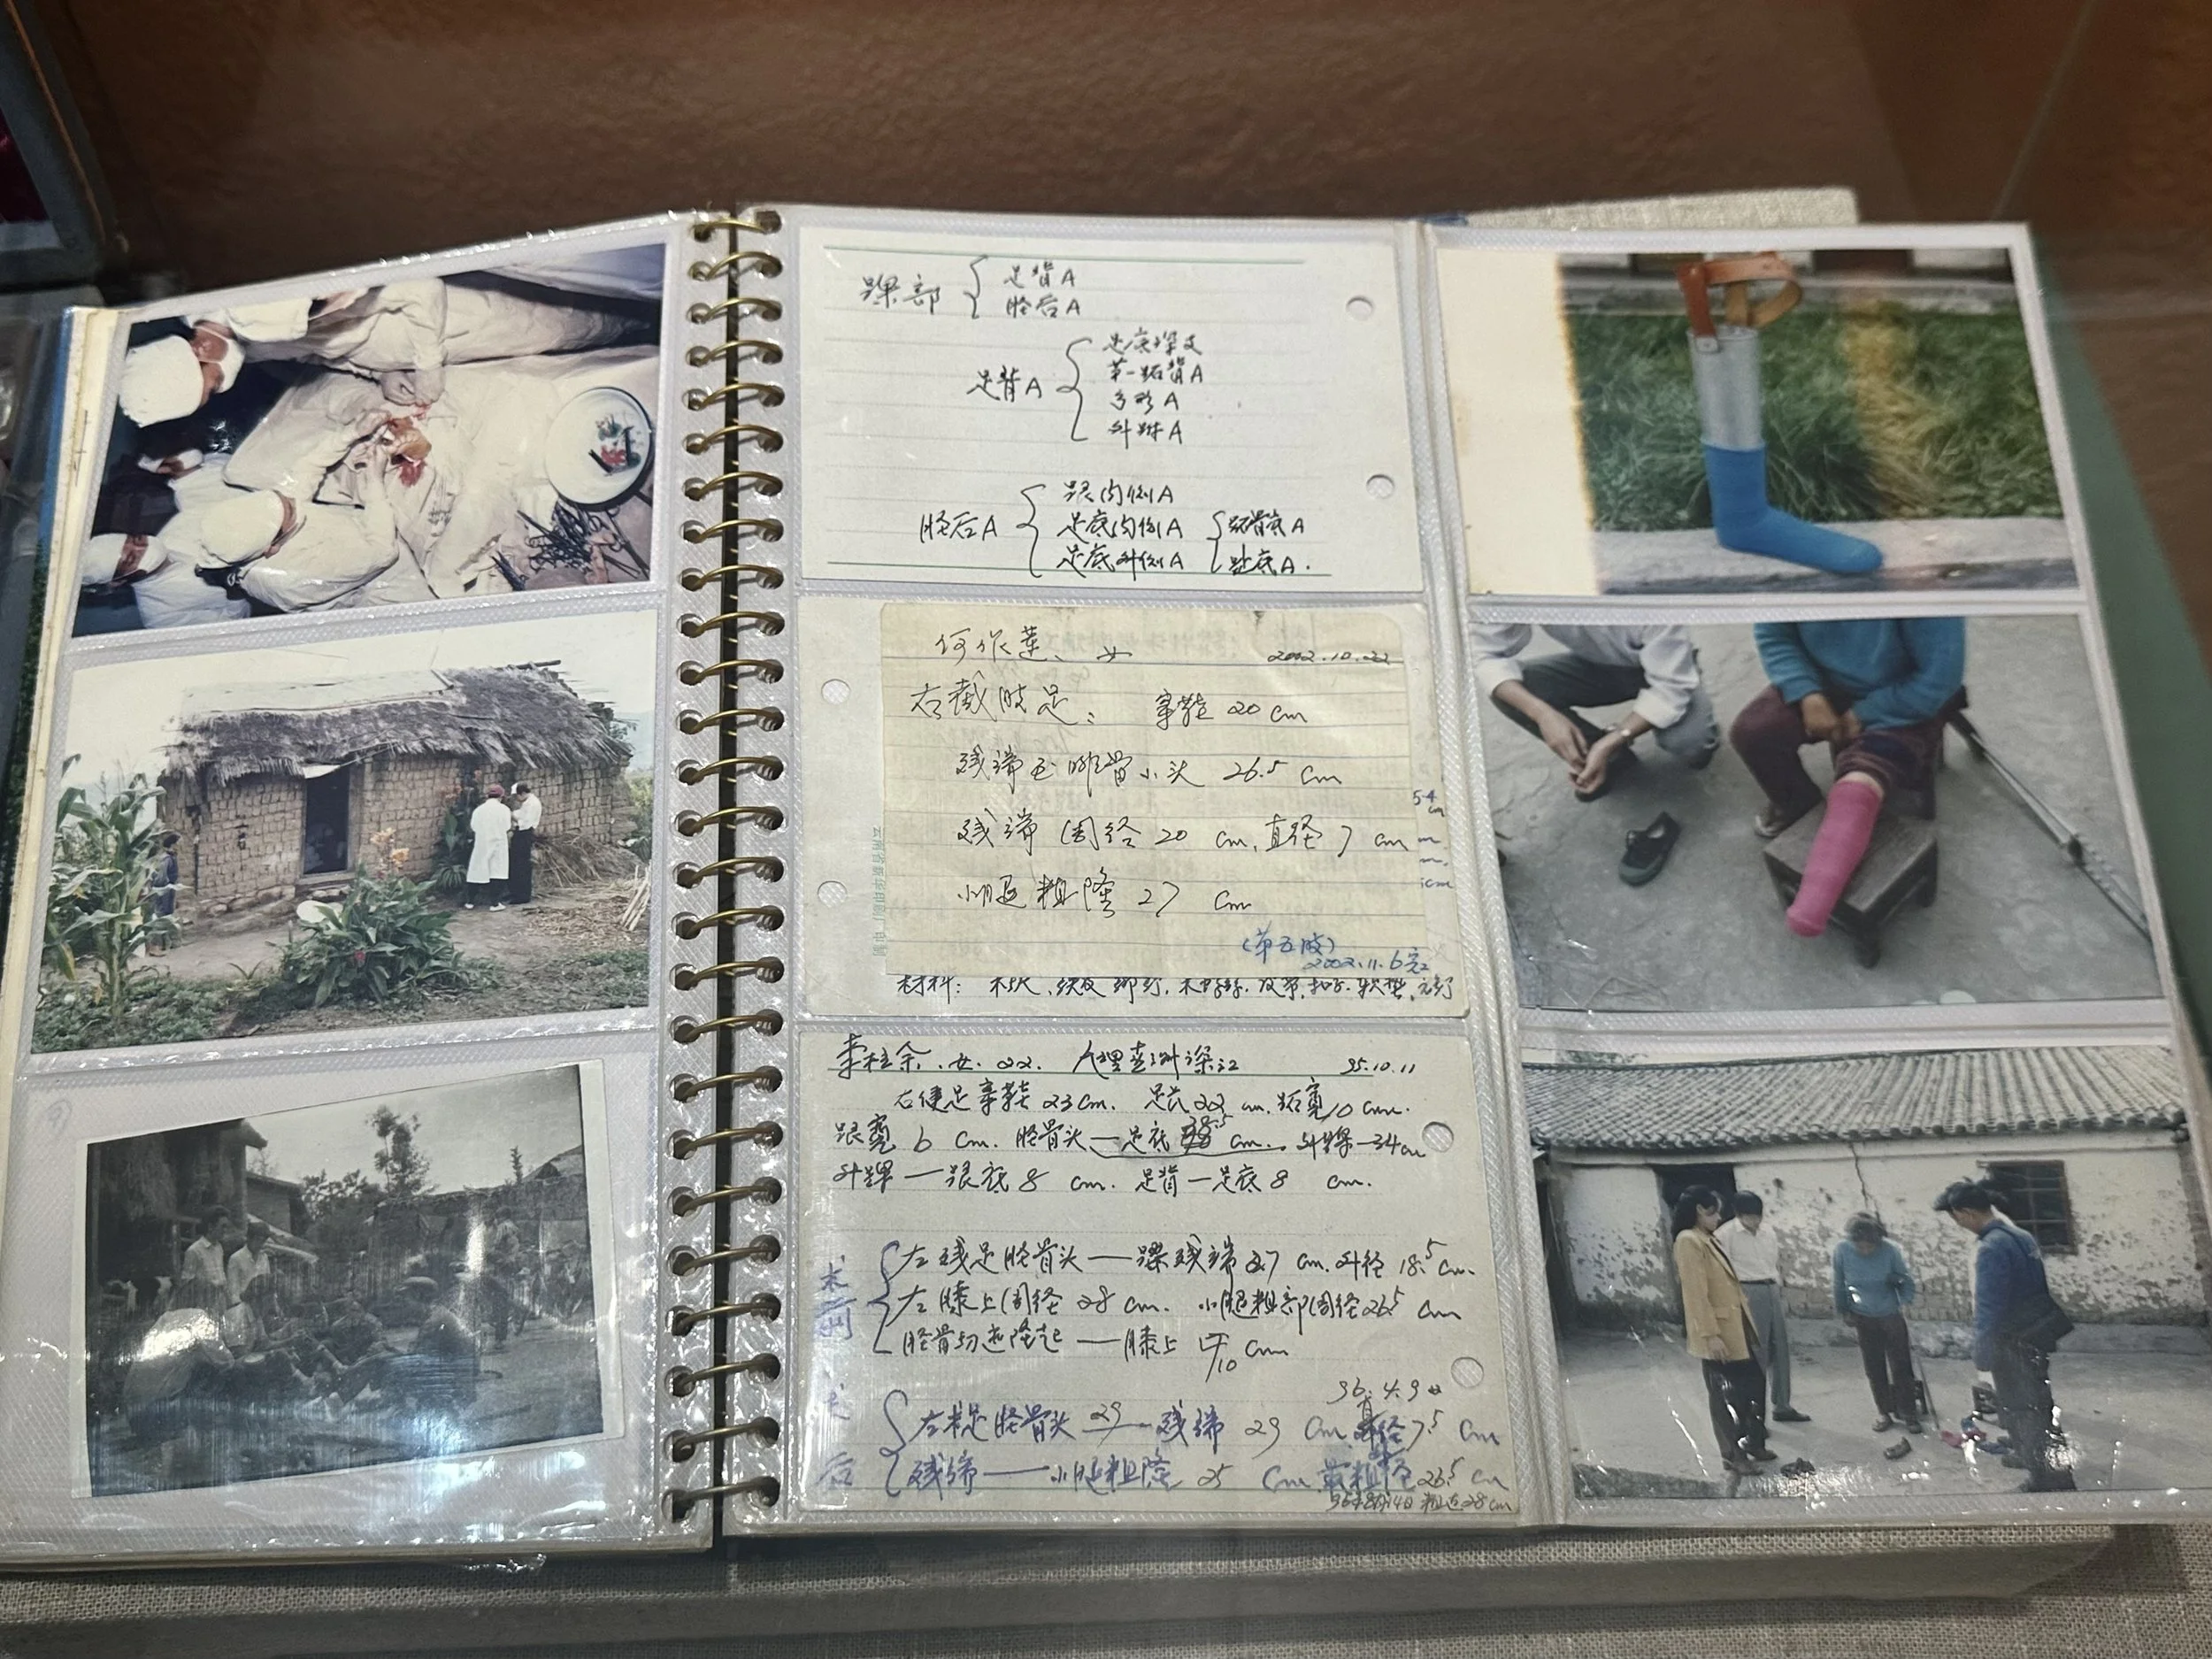 踝部 { 足背A
胫后A
足背A { 足底深支
第一跖背A
弓形A
外跗A
胫后A { 跟内侧A
足底内侧A { 跖骨底A
足底外侧A 趾底A.
何作莲、女 2002.10.22
右截肢足: 穿鞋 20 cm
残端至腓骨小头 26.5 cm
残端周径 20 cm, 直径 7 cm
小腿粗隆 27 cm
(第五肢)
2002.11.6完
材料: 木
女. 22. 95.10.11
右健足穿鞋 23 cm. 足长 22 cm. 跖宽 10 cm.
跟宽 6 cm. 胫骨头—足底 cm. 外踝—34cm
外踝—跟底 8 cm. 足背—足底 8 cm.
术前 { 左残足胫骨头——踝残端 27 cm. 外径 18.5 cm.
左膝上周径 28 cm. 小腿粗部周径 26.5 cm
胫骨 隆起——膝上 10 cm
96.4.9
术后 { 左 胫骨头 29 —残端 29 cm 直径 7.5 cm
残端——小腿粗隆 25 cm 最粗径 26.5 cm
28 cm